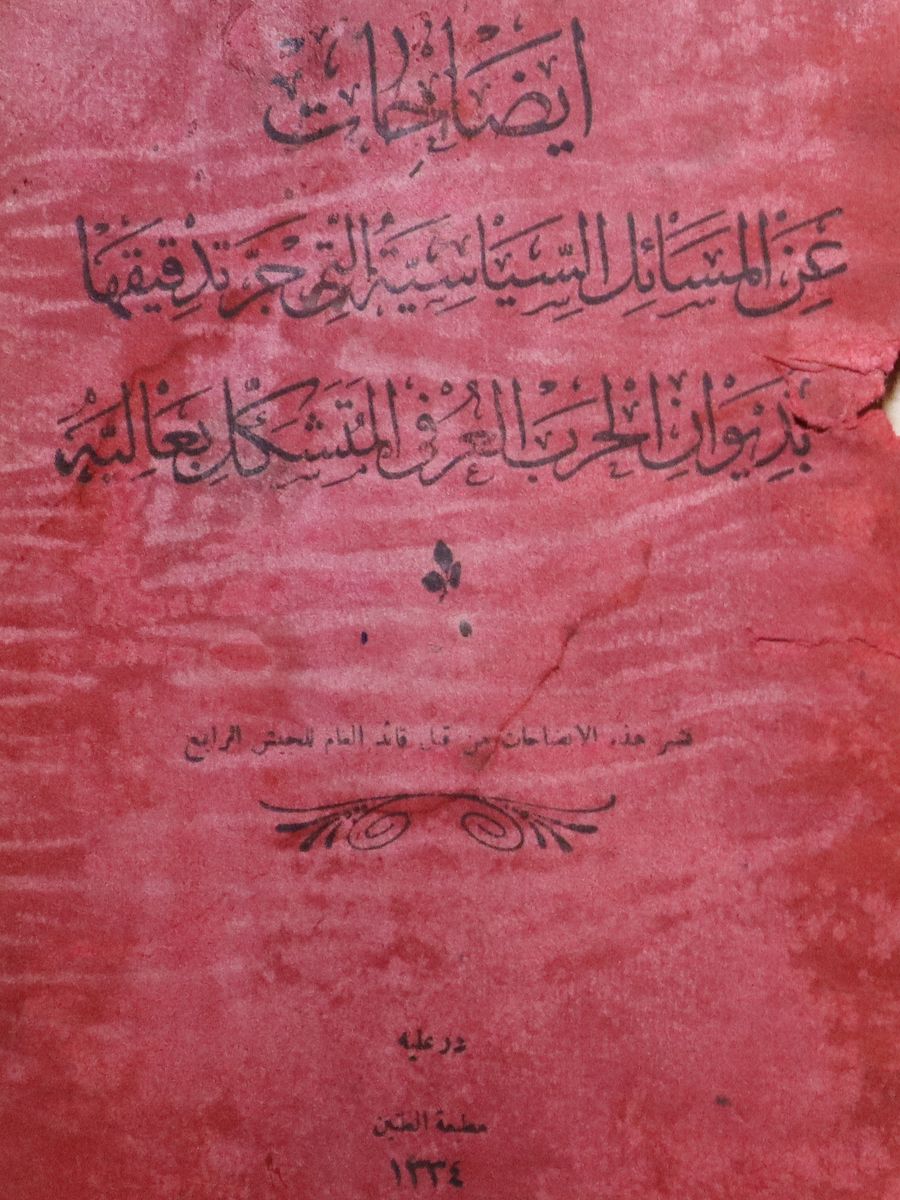 ايضاحات
عَنِ المَسَائِل السِّيَاسِيَّةُ الَّتِى جَرَ تَدْقِيقهَا
بِدِيوَانِ الحَرب العُرْفى المُتَشكِّل بِعَاليَه
نشر هذه الايضاحات من قبل قائد العام للجيش الرابع
در عليه
مطبعة الطنين
١٣٣٤